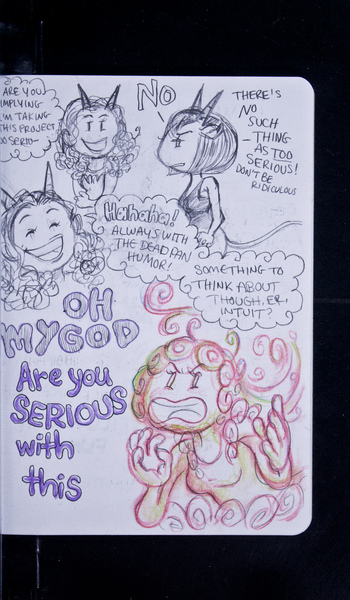 ARE YOU
IMPLYING
I'M TAKING
THIS PROJECT
OO SERIO-
NO
THERE'S
NO
SUCH
- THING
AS TOO
SERIOUS!
DON'T BE
RIDICULOUS
Hahaha!
ALWAYS WITH
THE DEADPAN
HUMOR!
SOMETHING TO
THINK ABOUT
THOUGH, ER,
INTUIT?
OH
MYGOD
Are you
SERIOUS
with
this